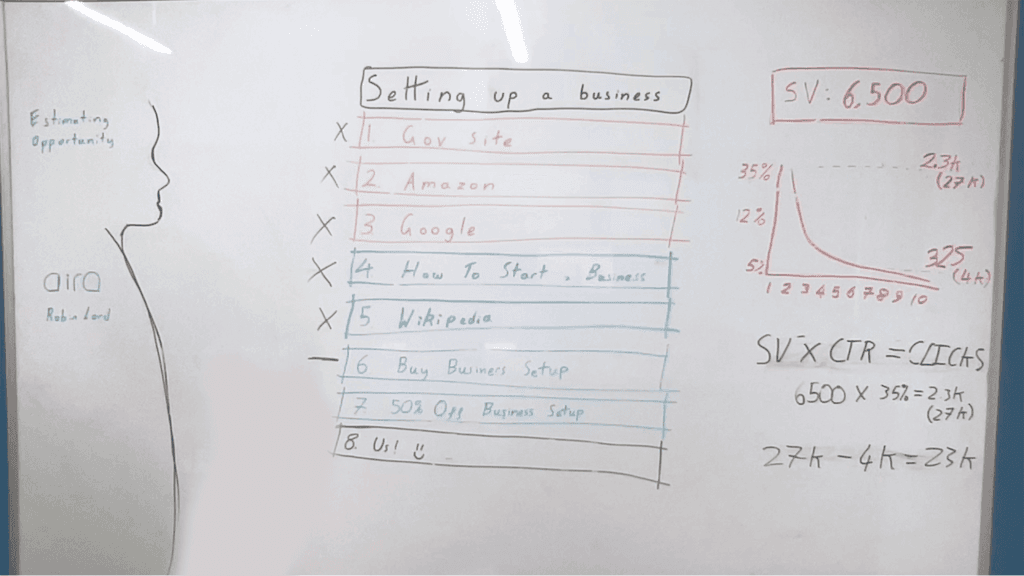 Estimating
Opportunity
aira
Robin Lord
Setting up a business
X 1 Gov site
X 2 Amazon
X 3 Google
X 4 How To Start . Business
X 5 Wikipedia
— 6 Buy Business Setup
7. 50% Off Business Setup
8. Us! ☺
SV: 6,500
35%
12%
5%
2.3k
(27k)
325
(4k)
1 2 3 4 5 6 7 8 9 10
SV X CTR = CLICKS
6500 X 35% = 2.3k
(27k)
27k - 4k = 23k